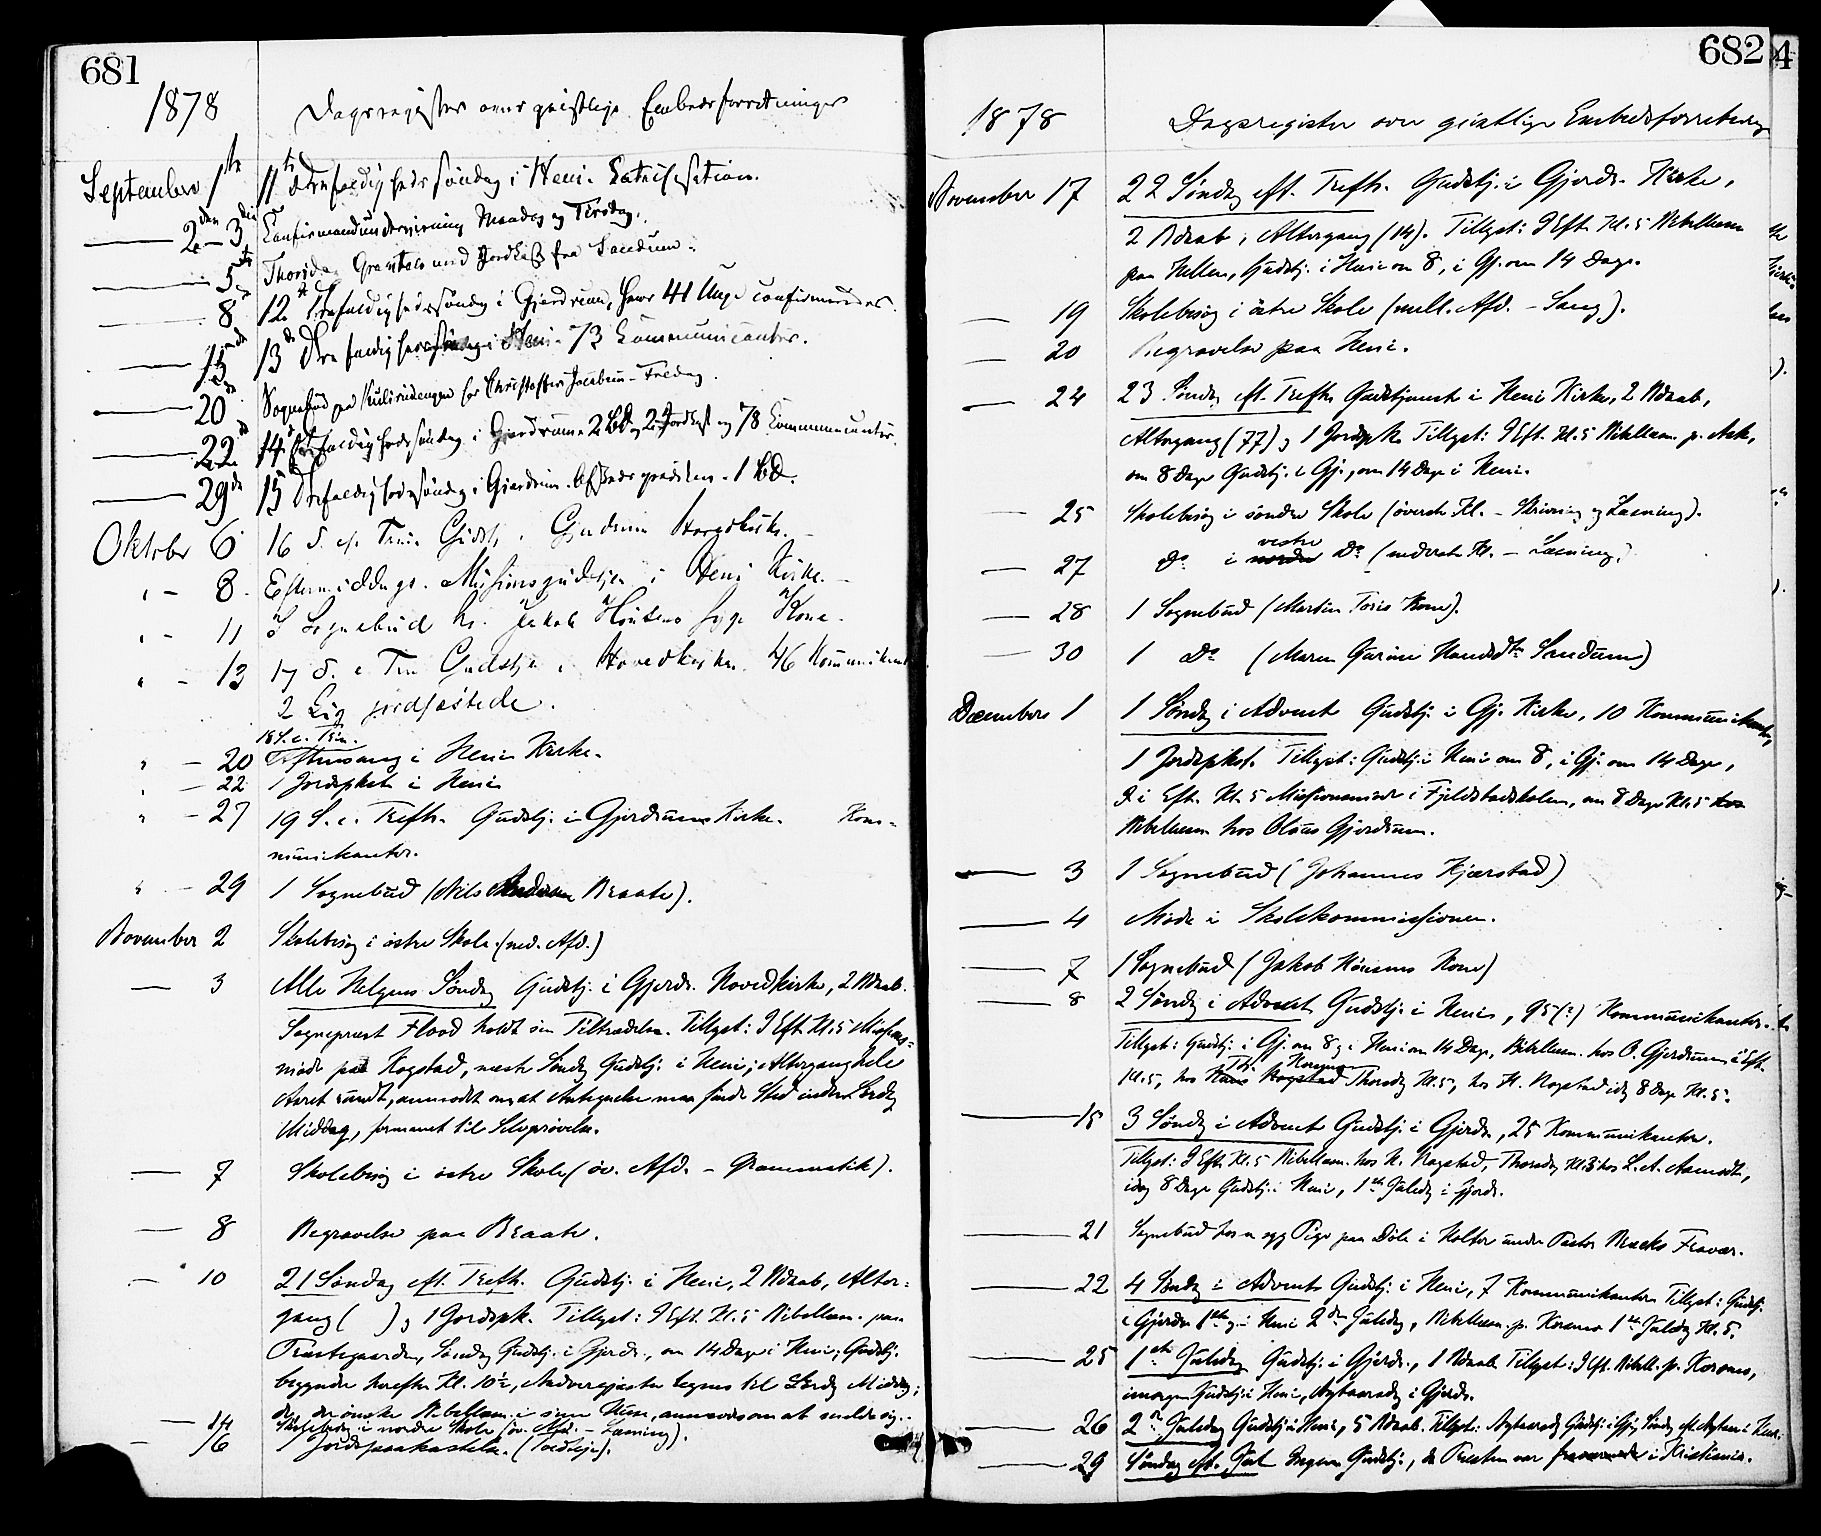 681
1878 Dagsregister over geistlige Embedsforretninger
September 1ste 11te Trefoldigheds Søndag i Heni. Catechisation.
2den–3die Confirmandundervisning Mandag og Tirsdag.
5te Thorsdag med Jordkast fra Sandum.
8 12te Trefoldighedssøndag i Gjerdrum, hvor 41 Unge confirmeredes.
15 13de Trefoldighedssøndag i Heni. 73 Communicanter.
20 Sognebud paa for Christoffer Jacobsen – Fredag.
22 14de Trefoldighedssøndag i Gjerdrum. 2 Bd. 2 Jordkast og 78 Communicanter.
29de 15 Trefoldighedssøndag i Gjerdrum. Afskedsprædiken. 1 Bd.
Oktober 6 16 S. e. Trin. Gudstj. i Gjerdrum Hovedkirke.
" – 8 Eftermiddags. Missionsgudstjen i Heni Kirke.
" – 11 I Sognebud hos Jakob syge Kone.
" – 13 17 S. e. Trin Gudstje i Hovedkirken. 46 Kommunikant
2 Lig jordfæstede.
18 S. e. Trin.
" – 20 Aftensang i Heni Kirke.
" – 22 1 Jordspkst i Heni
" – 27 19 S. e. Trefh. Gudstj. i Gjerdrums Kirke. Kom-
munikanter.
" – 29 1 Sognebud (Nils Braate).
November 2 Skolebesøg i østre Skole (ned. Afd.)
— 3 Alle Helgens Søndag Gudstj. i Gjerdr. Hovedkirke, 2 Bdaab.
Sogneprest Flood holdt sin Tiltrædelse. Tillyst: I Eft. Kl. 5 Missions-
møde paa Rogstad, næste Søndag Gudstj. i Heni; Altergang hele
Aaret rundt, anmodet om at Antegnelse maa finde Sted inden Lørdag
Middag, formanet til Selvprøvelse.
— 7 Skolebesøg i østre Skole (øv. Afd. – Grammatik).
— 8 Begravelse paa Braate.
— 10 21 Søndag eft. Trefh. Gudstj. i Heni, 2 Bdaab, Alter-
gang ( ) og 1 Jordspk. Tillyst: I Eft. Kl. 5 Bibellæsn. paa
Præstegaarden, Søndag Gudstj. i Gjerdr., om 14 Dage i Heni; Gudstj.
begynder herefter Kl. 10½, Nadvergjester tegnes til Lørdag Middag;
de, der ønske Bibellæsn. i sine Huse, anmodes om at melde sig.
— 14 Skolebesøg i nordre Skole (øv. Afd. – Læsning).
— 16 1 Jordspaakastelse.
682
1878 Dagsregister over geistlige Embedsforretning
November 17 22 Søndag eft. Trefh. Gudstj. i Gjerdr. Kirke,
2 Bdaab, Altergang (14). Tillyst: I Eft. Kl. 5 Bibellæsn
paa Hellen, Gudstj. i Heni om 8, i Gj. om 14 Dage.
— 19 Skolebesøg i østre Skole (mell. Afd. – Sang).
— 20 Begravelse paa Heni.
— 24 23 Søndag eft. Trefh. Gudstjeneste i Heni Kirke, 2 Bdaab,
Altergang (77) og 1 Jordspk. Tillyst: I Eft. Kl. 5 Bibellæsn. p. Ask,
om 8 Dage Gudstj. i Gj., om 14 Dage i Heni.
— 25 Skolebesøg i søndre Skole (øverste Kl. – Skrivning og Læsning).
vestre
— 27 Do i nordre Do (nederste Kl. – Læsning)
— 28 1 Sognebud (Martin Toris Kone).
— 30 1 Do (Maren Gurine Sandum)
December 1 1 Søndag i Advent Gudstj. i Gj. Kirke, 10 Kommunikanter,
1 Jordspkst. Tillyst: Gudstj. i Heni om 8, i Gj. om 14 Dage,
I i Eft. Kl. 5 Missionsmøde i Fjeldstadskolen, om 8 Dage Kl. 5 hos
Bibellæsn hos Olaus Gjerdrum.
— 3 1 Sognebud (Johannes Kjærstad)
— 4 Møde i Skolekommissionen.
— 7 1 Sognebud (Jakob Kone)
— 8 2 Søndag i Advent Gudstj. i Heni, 95(?) Kommunikanter.
Tillyst: Gudstj. i Gj. om 8 og i Heni om 14 Dage, Bibellæsn. hos O. Gjerdrum i Eft.
Kl. 5, hos Hans Rogstad Thorsdag Kl. 5, hos H. Rogstad idag 8 Dage Kl. 5.
— 15 3 Søndag i Advent Gudstj. i Gjerdr., 25 Kommunikanter.
Tillyst: I Eft. Kl. 5 Bibellæsn. hos H. Rogstad, Thorsdag Kl. 3 hos L. A. Aamodt,
idag 8 Dage Gudstj. i Heni, 1ste Juledag i Gjerdr.
— 21 Sognebud hos en syg Pige paa Døle i Holter under Pastor Fravær.
— 22 4 Søndag i Advent Gudstj. i Heni, 7 Kommunikanter Tillyst: Gudstj.
i Gjerdr. 1ste og i Heni 2den Juledag, Bibellæsn. p. 1ste Juledag Kl. 5.
— 25 1ste Juledag Gudstj. i Gjerdr., 1 Bdaab Tillyst: I Eft. Bibell. p.
imorgen Gudstj. i Heni, Nytaarsdag i Gjerdr.
— 26 2n Juledag Gudstj. i Heni, 5 Bdaab. Tillyst: Nytaarsdag Gudstj. i Gj., Søndag eft. Nytaar i Heni.
— 29 Søndag eft. Jul Ingen Gudstj., da Presten var i Kristiania.